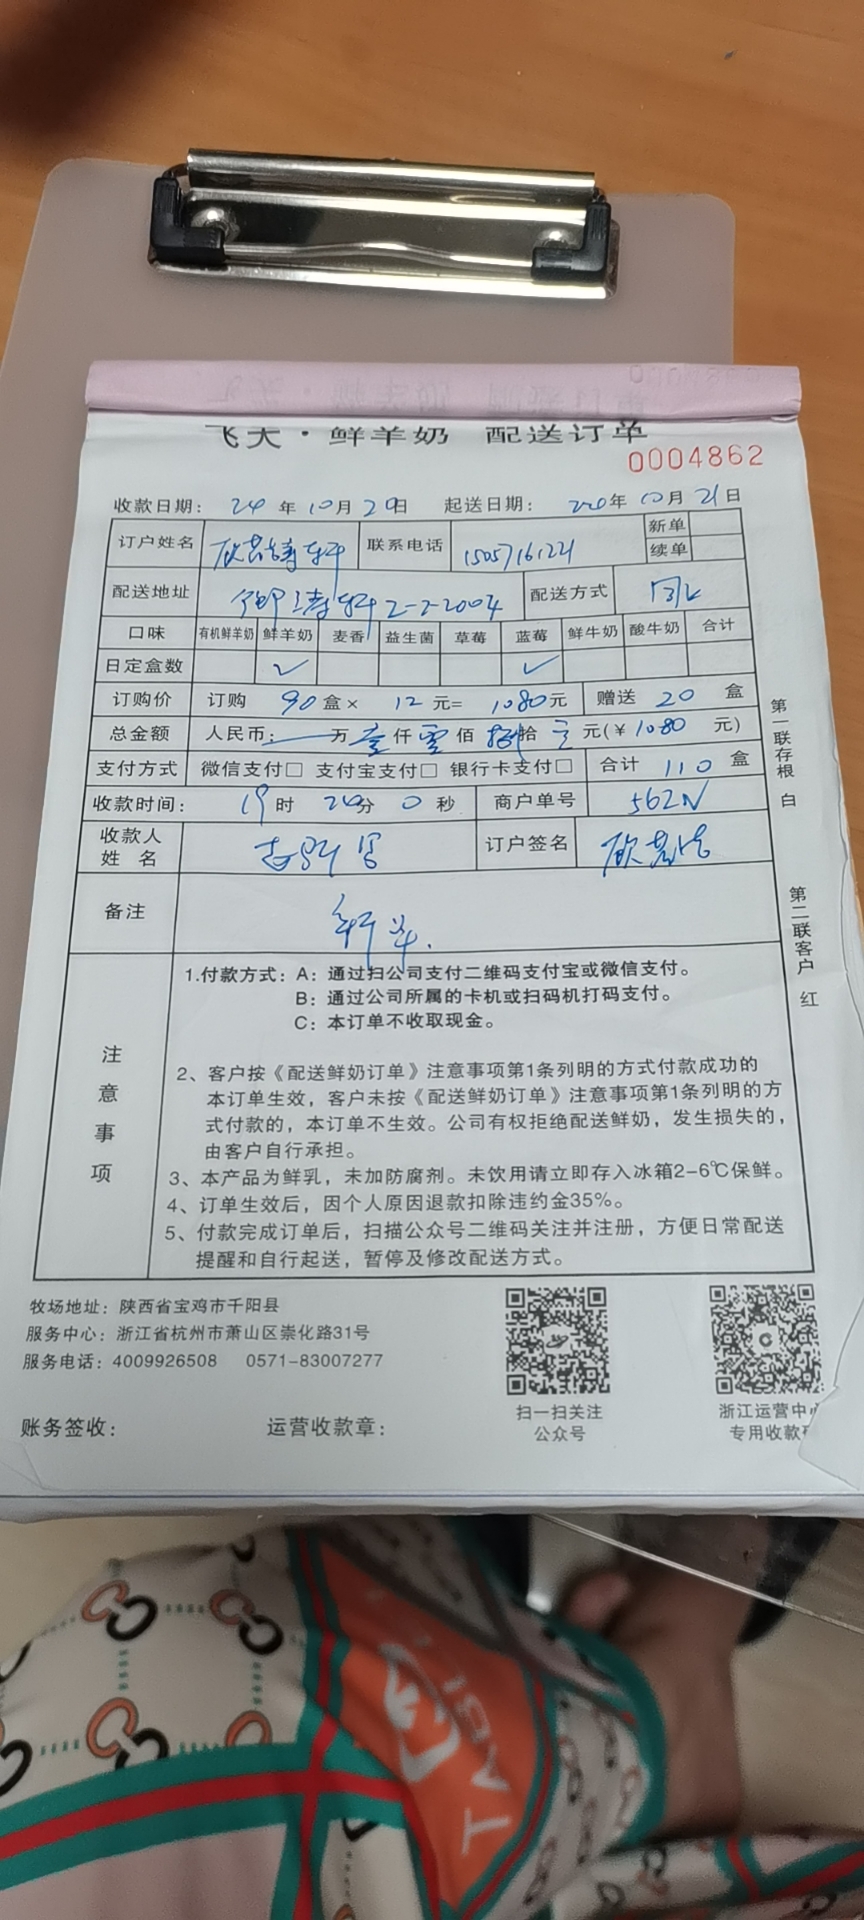 飞天·鲜羊奶 配送订单
0004862
收款日期： 24 年 10 月 20 日 起送日期： 年 10 月 21 日
订户姓名 联系电话 15057161221 新单
续单
配送地址 2-2-2004 配送方式
口味 有机鲜羊奶 鲜羊奶 麦香 益生菌 草莓 蓝莓 鲜牛奶 酸牛奶 合计
日定盒数 ✓ ✓
订购价 订购 90 盒× 12 元= 1080 元 赠送 20 盒
总金额 人民币： 万 壹 仟 零 佰 捌 拾 元(￥1080 元)
支付方式 微信支付□ 支付宝支付□ 银行卡支付□ 合计 110 盒
收款时间： 19 时 20 分 0 秒 商户单号 562N
收款人
姓 名 订户签名
备注
注意事项
1.付款方式：A：通过扫公司支付二维码支付宝或微信支付。
B：通过公司所属的卡机或扫码机打码支付。
C：本订单不收取现金。
2、客户按《配送鲜奶订单》注意事项第1条列明的方式付款成功的
本订单生效，客户未按《配送鲜奶订单》注意事项第1条列明的方
式付款的，本订单不生效。公司有权拒绝配送鲜奶，发生损失的，
由客户自行承担。
3、本产品为鲜乳，未加防腐剂。未饮用请立即存入冰箱2-6℃保鲜。
4、订单生效后，因个人原因退款扣除违约金35%。
5、付款完成订单后，扫描公众号二维码关注并注册，方便日常配送
提醒和自行起送，暂停及修改配送方式。
第一联存根 白
第二联客户 红
牧场地址：陕西省宝鸡市千阳县
服务中心：浙江省杭州市萧山区崇化路31号
服务电话：4009926508 0571-83007277
扫一扫关注
公众号
浙江运营中心
专用收款
账务签收： 运营收款章：
TABLE